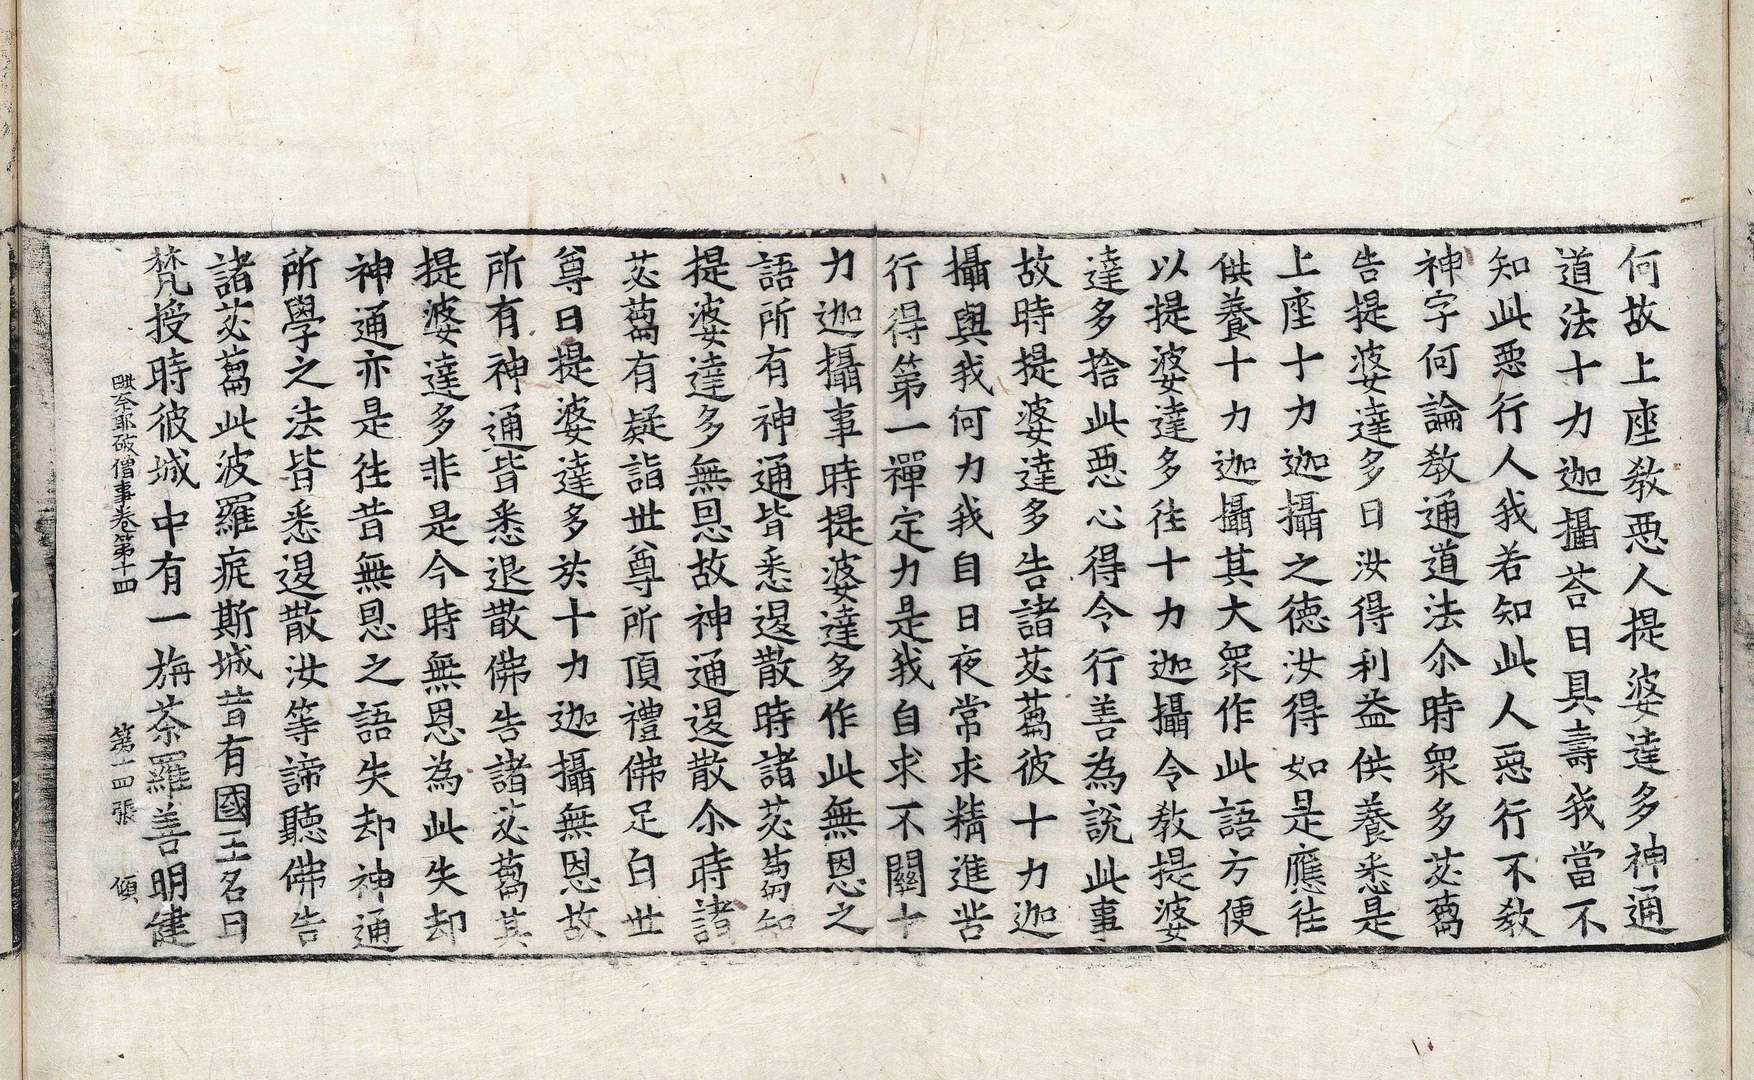 何故上座教惡人提婆達多神通
道法十力迦攝荅曰具壽我當不
知此惡行人我若知此人惡行不教
神字何論教通道法尒時衆多苾蒭
告提婆達多曰汝得利益供養悉是
上座十力迦攝之德汝得如是應往
供養十力迦攝其大衆作此語方便
以提婆達多往十力迦攝令教提婆
達多捨此惡心得令行善為說此事
故時提婆達多告諸苾蒭彼十力迦
攝與我何力我自日夜常求精進皆
行得第一禪定力是我自求不關十
力迦攝事時提婆達多作此無恩之
語所有神通皆悉退散時諸苾蒭知
提婆達多無恩故神通退散尒時諸
苾蒭有疑詣世尊所頂禮佛足白世
尊曰提婆達多於十力迦攝無恩故
所有神通皆悉退散佛告諸苾蒭其
提婆達多非是今時無恩為此失却
神通亦是往昔無恩之語失却神通
所學之法皆悉退散汝等諦聽佛告
諸苾蒭此波羅痆斯城昔有國王名曰
梵授時彼城中有一旃荼羅善明健
毗奈耶破僧事卷第十四 第十四張 傾